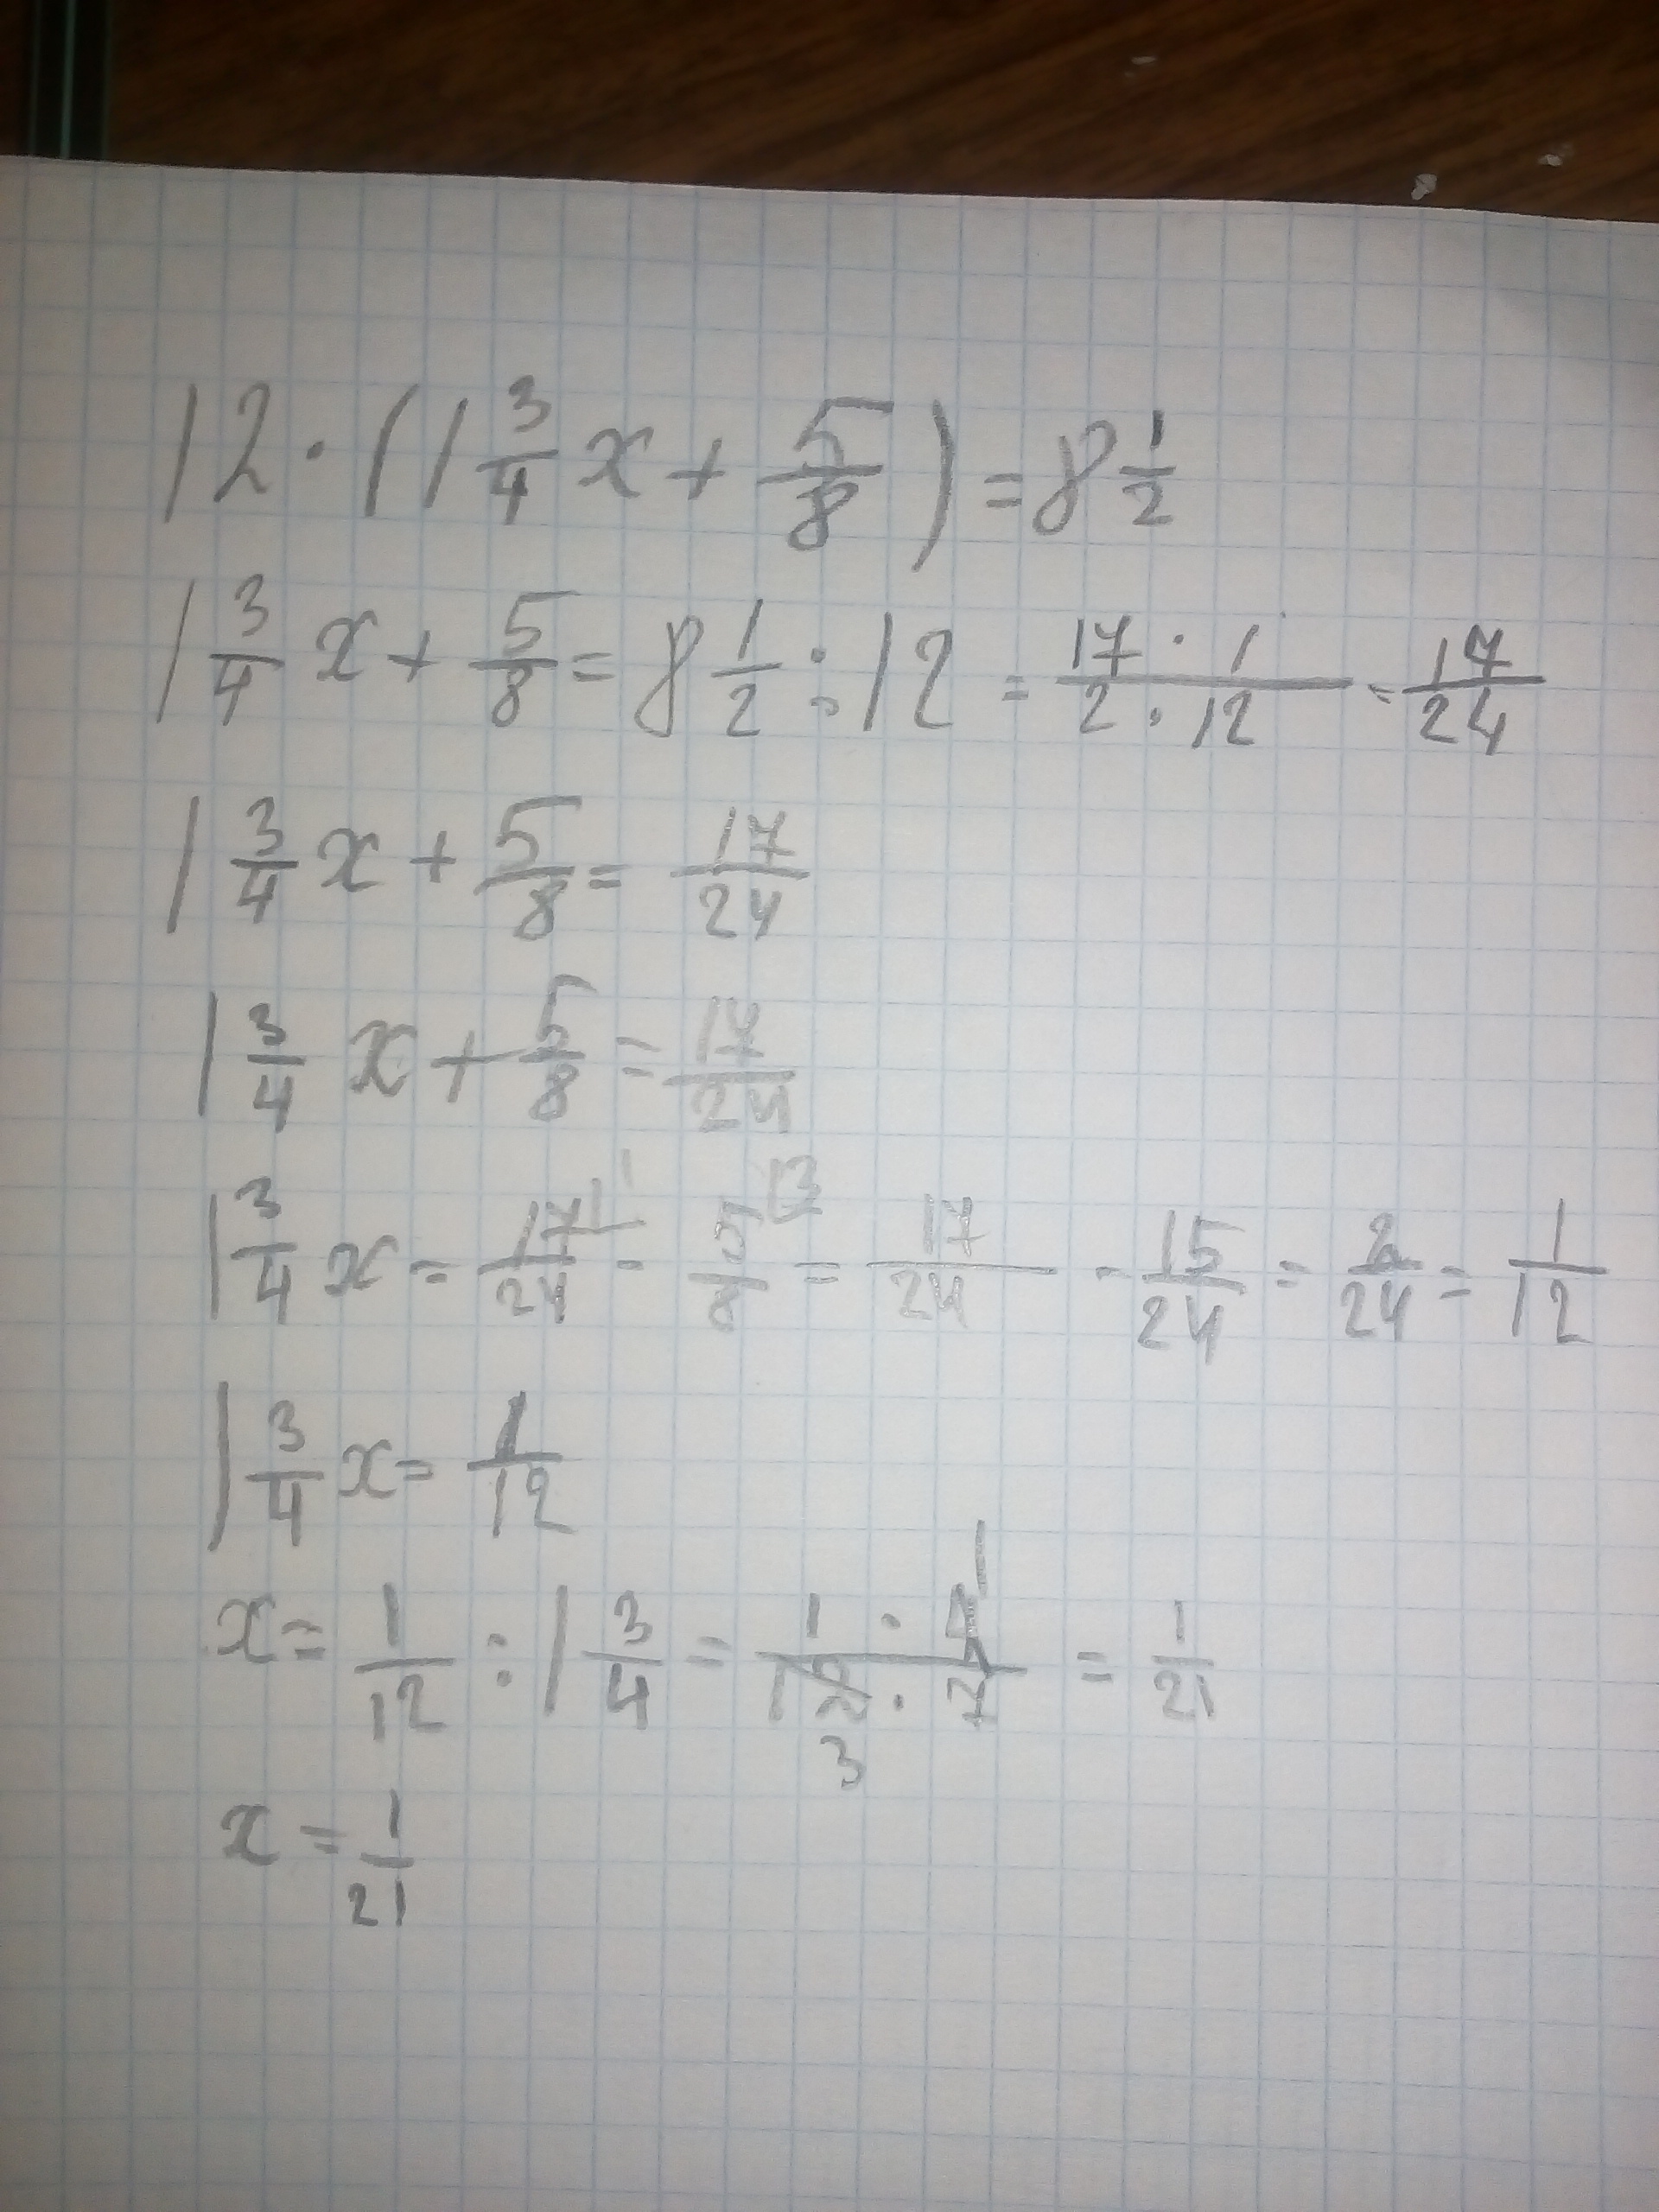 12 · (1 3/4 x + 5/8) = 8 1/2
1 3/4 x + 5/8 = 8 1/2 : 12 = 17 · 1 / 2 · 12 = 17/24
1 3/4 x + 5/8 = 17/24
1 3/4 x + 5/8 = 17/24
1 3/4 x = 17/24 |1 - 5/8 |3 = 17/24 - 15/24 = 2/24 = 1/12
1 3/4 x = 1/12
x = 1/12 : 1 3/4 = 1 · 4 1 / 12 3 · 7 = 1/21
x = 1/21